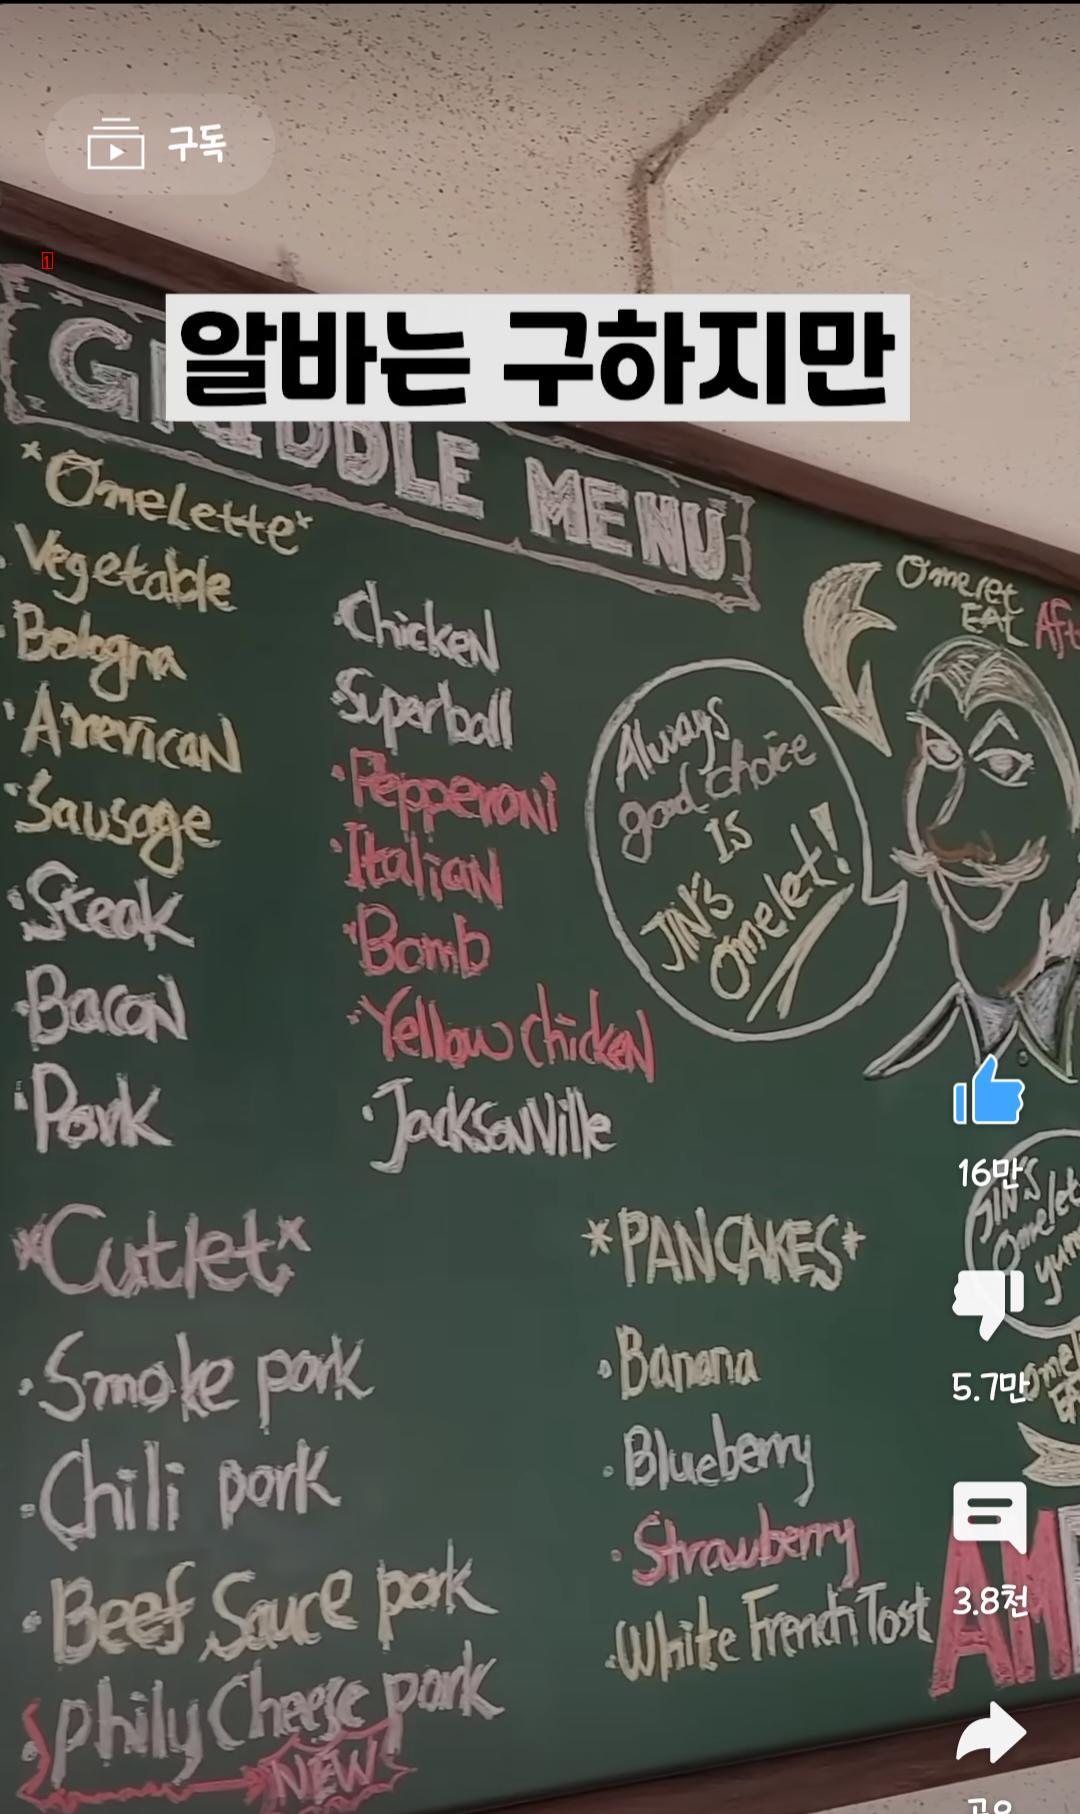 구독
알바는 구하지만
GRIDDLE MENU
*Omelette*
Vegetable
Bologna
American
Sausage
Steak
Bacon
Pork
Chicken
Superball
Pepperoni
Italian
Bomb
Yellow chicken
Jacksonville
Omeret
EAt
Always
good choice
IS
JIN'S
omelet!
*Cutlet*
Smoke pork
Chili pork
Beef Sauce pork
phily Cheese pork
NEW
*PANCAKES*
Banana
Blueberry
Strawberry
White French Tost
JIN'S
Omelet
16만
5.7만
3.8천